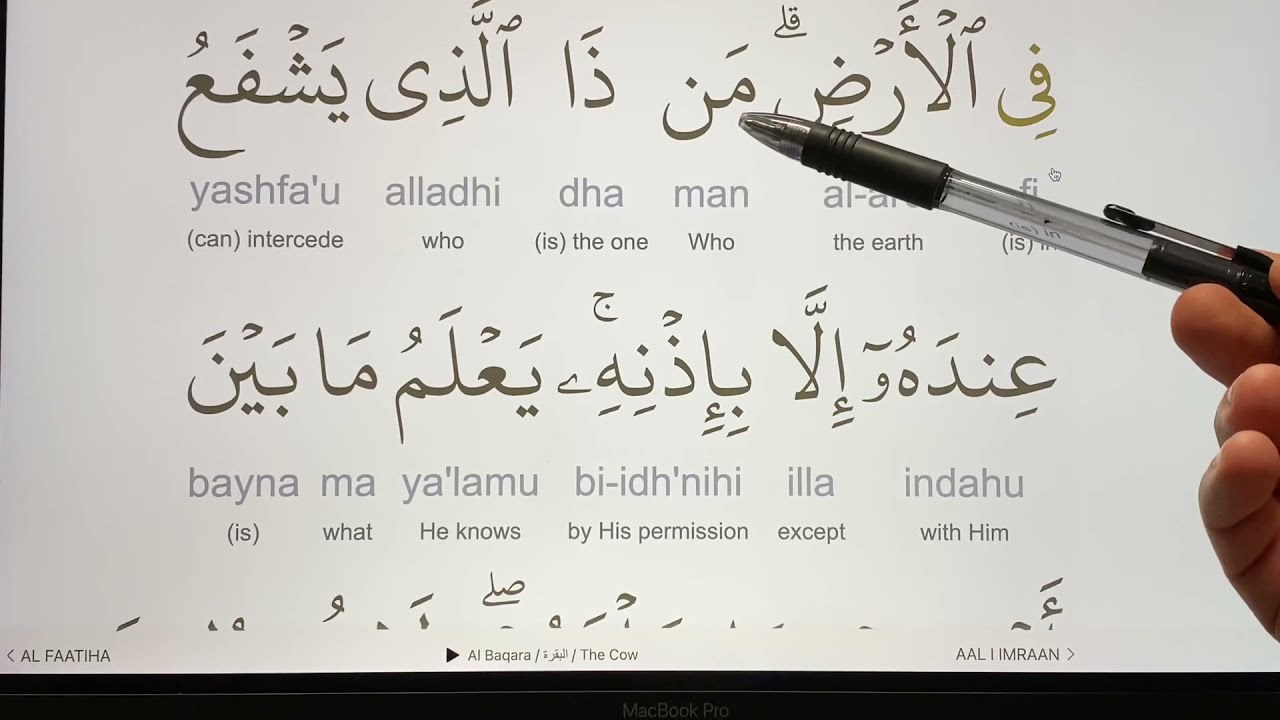 فِى ٱلْأَرْضِ ۗ مَن ذَا ٱلَّذِى يَشْفَعُ
yashfa'u alladhi dha man fi
(can) intercede who (is) the one Who the earth (is) in
عِندَهُۥٓ إِلَّا بِإِذْنِهِۦ ۚ يَعْلَمُ مَا بَيْنَ
bayna ma ya'lamu bi-idh'nihi illa indahu
(is) what He knows by His permission except with Him
< AL FAATIHA ▶ Al Baqara / البقرة / The Cow AAL I IMRAAN >
MacBook Pro